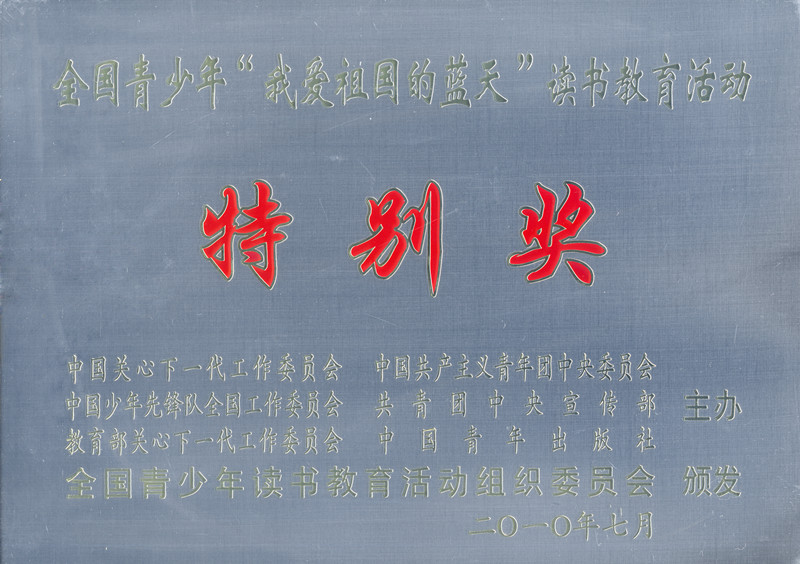 全国青少年“我爱祖国的蓝天”读书教育活动
特别奖
中国关心下一代工作委员会 中国共产主义青年团中央委员会
中国少年先锋队全国工作委员会 共青团中央宣传部 主办
教育部关心下一代工作委员会 中国青年出版社
全国青少年读书教育活动组织委员会 颁发
二〇一〇年七月